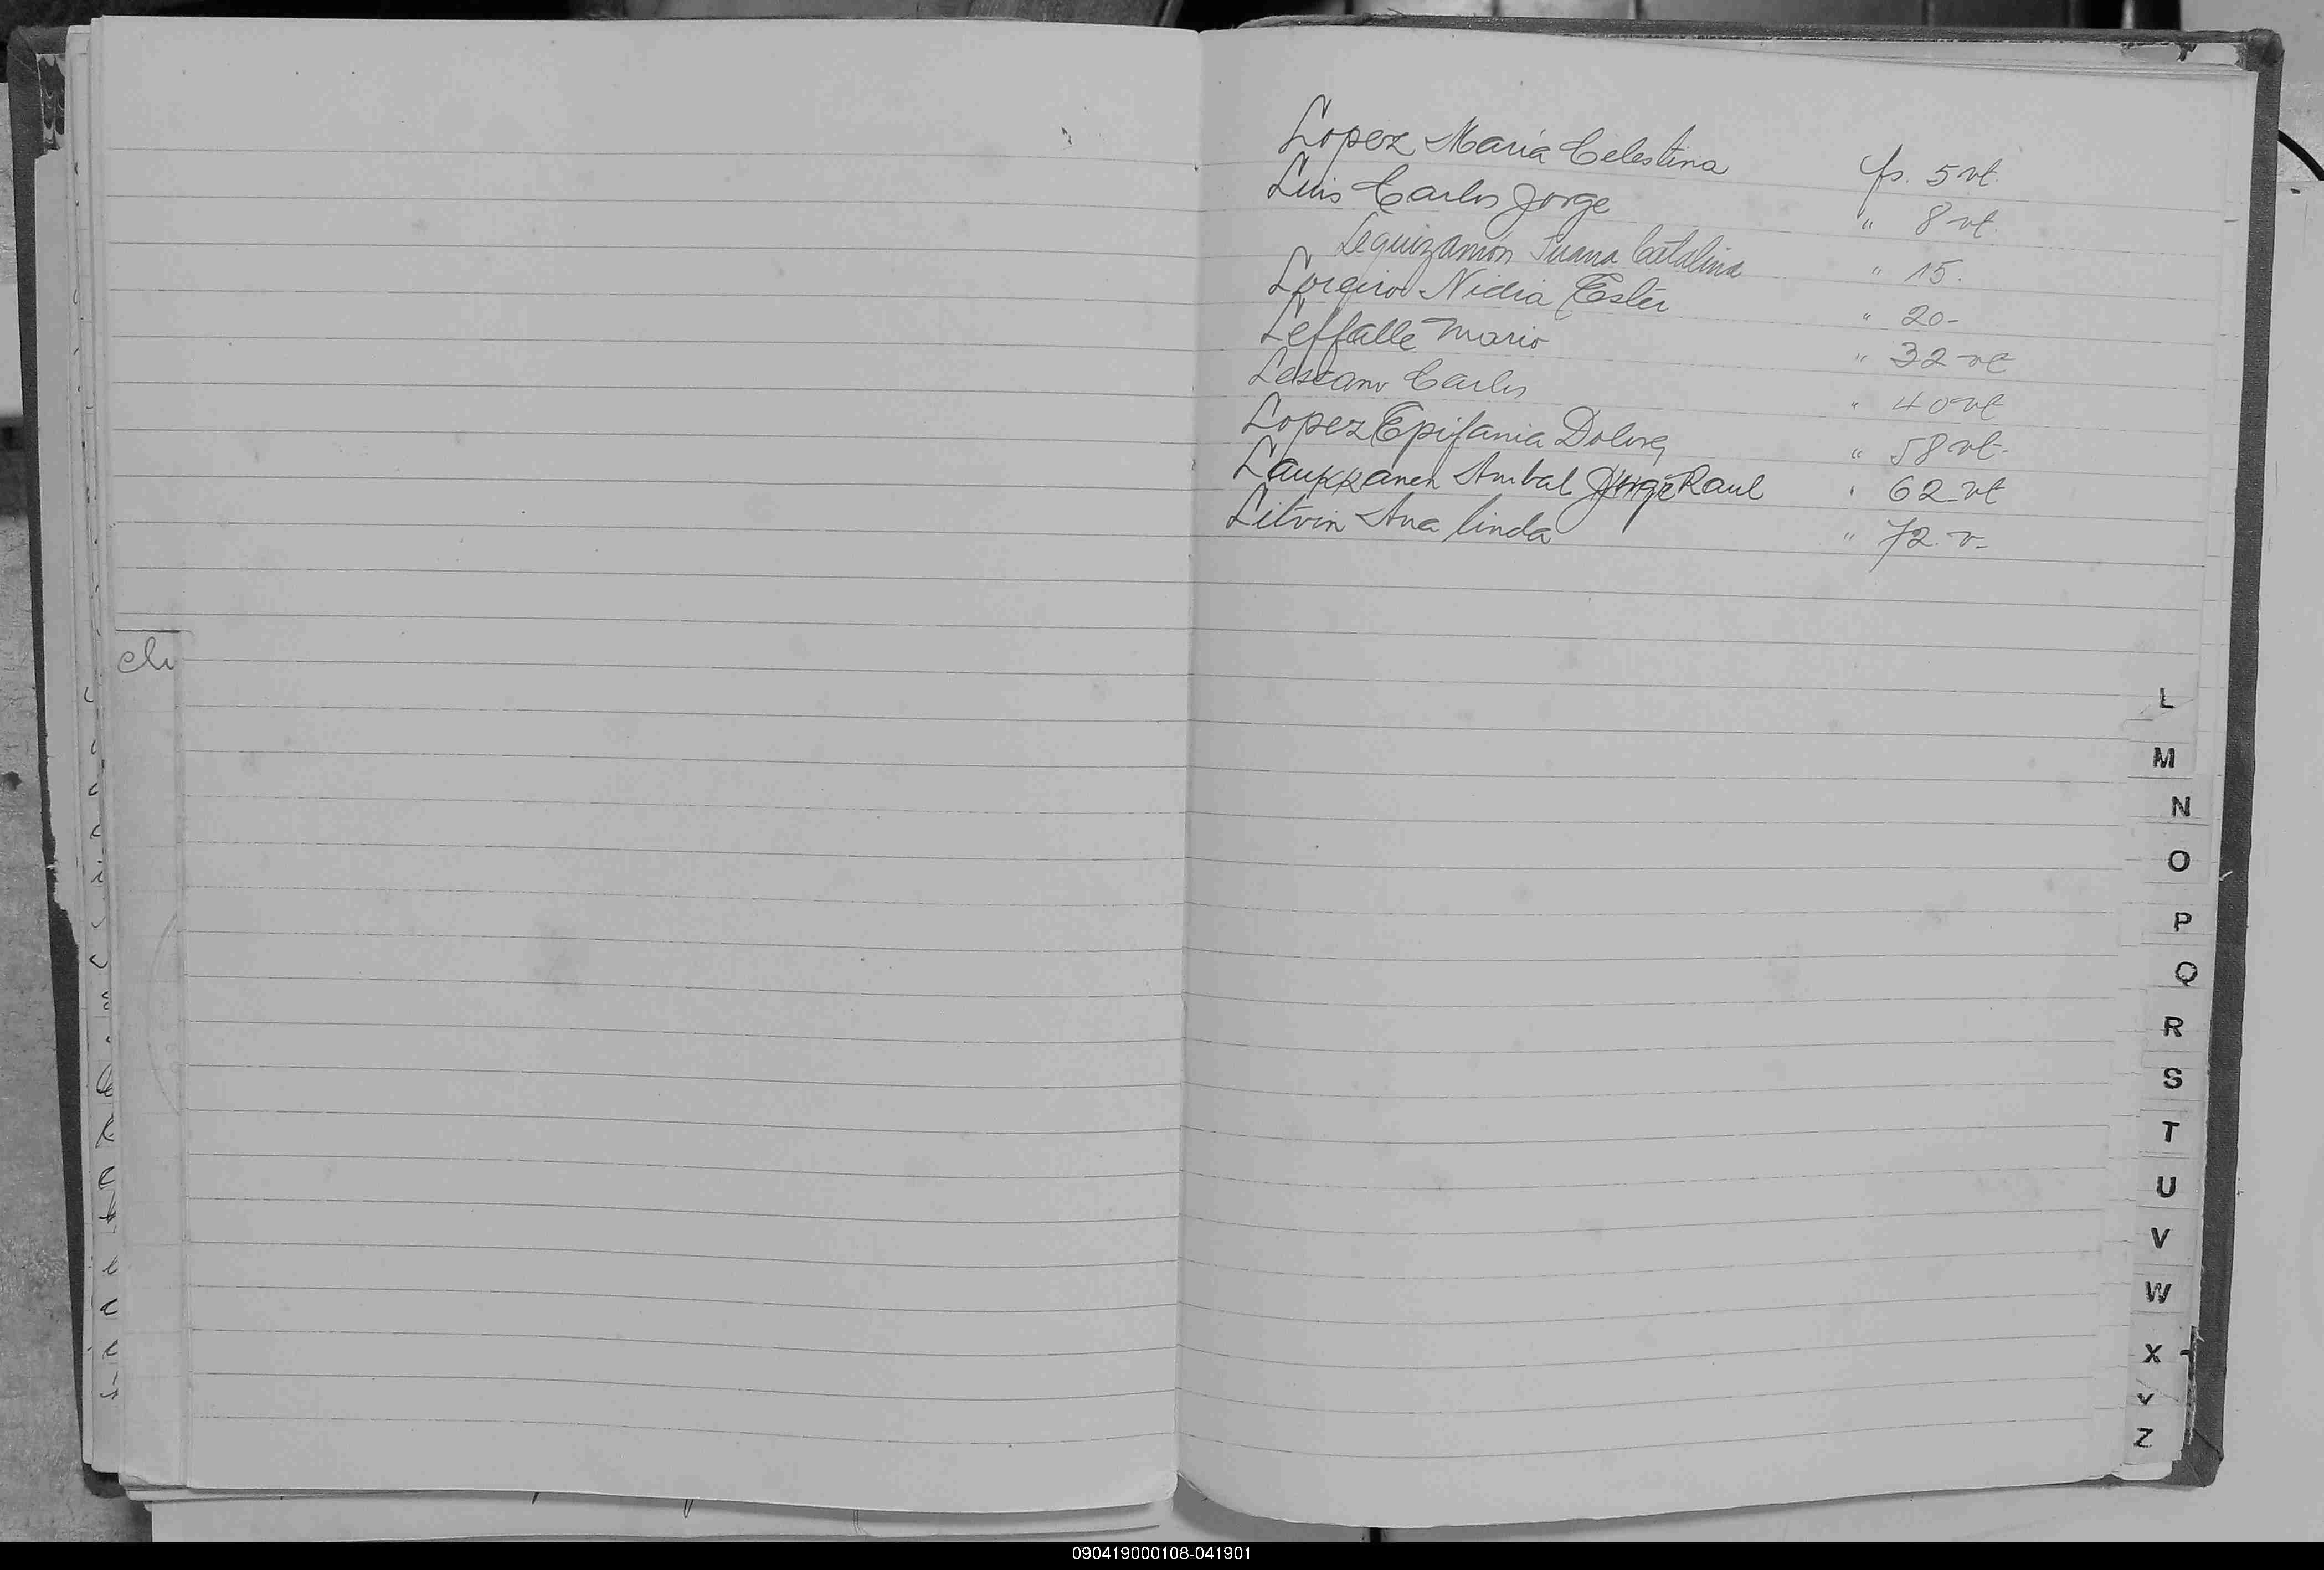 Lopez Maria Celestina fs. 5 vt.
Luis Carlos Jorge " 8 vt.
Leguizamón Juana Catalina " 15.
Loreiro Nidia Ester " 20-
Leffalle Mario " 32 vt
Lescano Carlos " 40 vt
Lopez Epifania Dolores " 58 vt.
Laukkanen Anibal Jorge Raul " 62 vt
Litvin Ana linda " 72 v-
L
M
N
O
P
Q
R
S
T
U
V
W
X
Y
Z
090419000108-041901